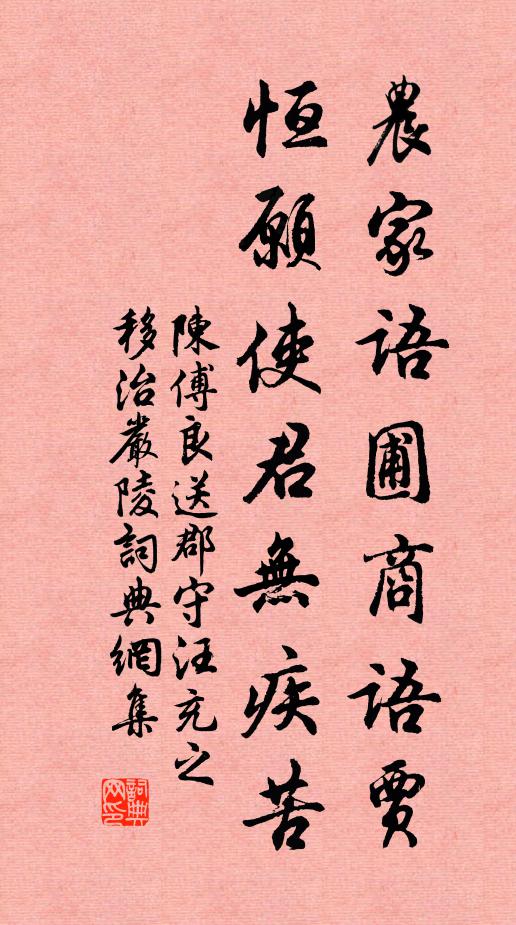 農家語圃商語賈
恒願使君無疾苦
陳傅良送郡守汪充之
移治嚴陵詞典網集
詞典网印